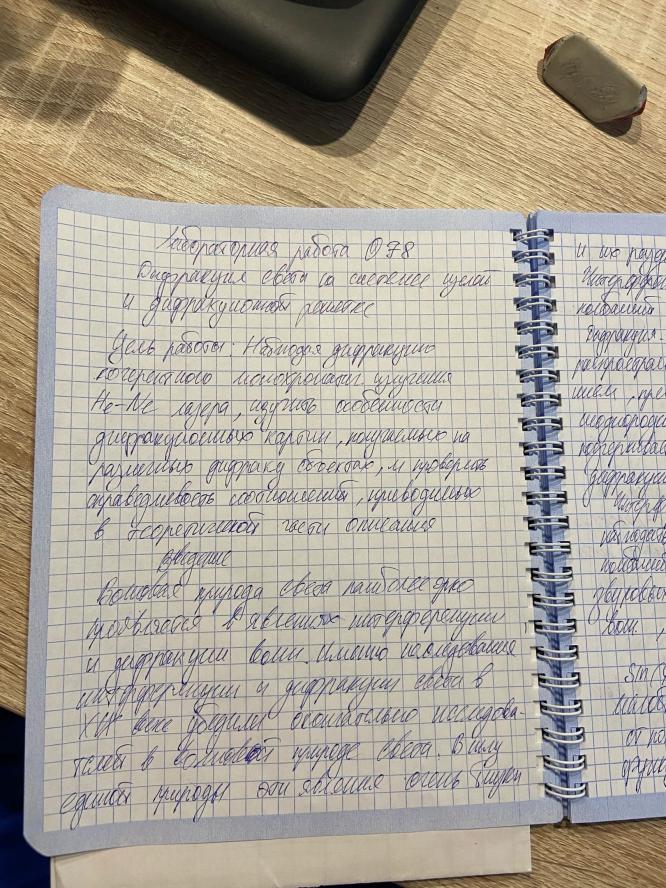 Лабораторная работа О78
Дифракция света на системе щелей
и дифракционной решетке
Цель работы: Наблюдая дифракцию
когерентного монохроматич. излучения
He-Ne лазера, изучить особенности
дифракционных картин, получаемых на
различных дифракц объектах, и проверить
справедливость соотношений, приводимых
в теоретической части описания
Введение
Волновая природа света наиболее ярко
проявляется в явлениях интерференции
и дифракции волн. Именно исследования
интерференции и дифракции света в
XIX веке убедили окончательно исследова-
телей в волновой природе света. В силу
единой природы эти явления очень близки
и их
Интерфе
колебаний
Дифракция -
распростра
нием, пре
неоднород
дифракци
Интерф
наблюдать
звуковых
волн.
sin(